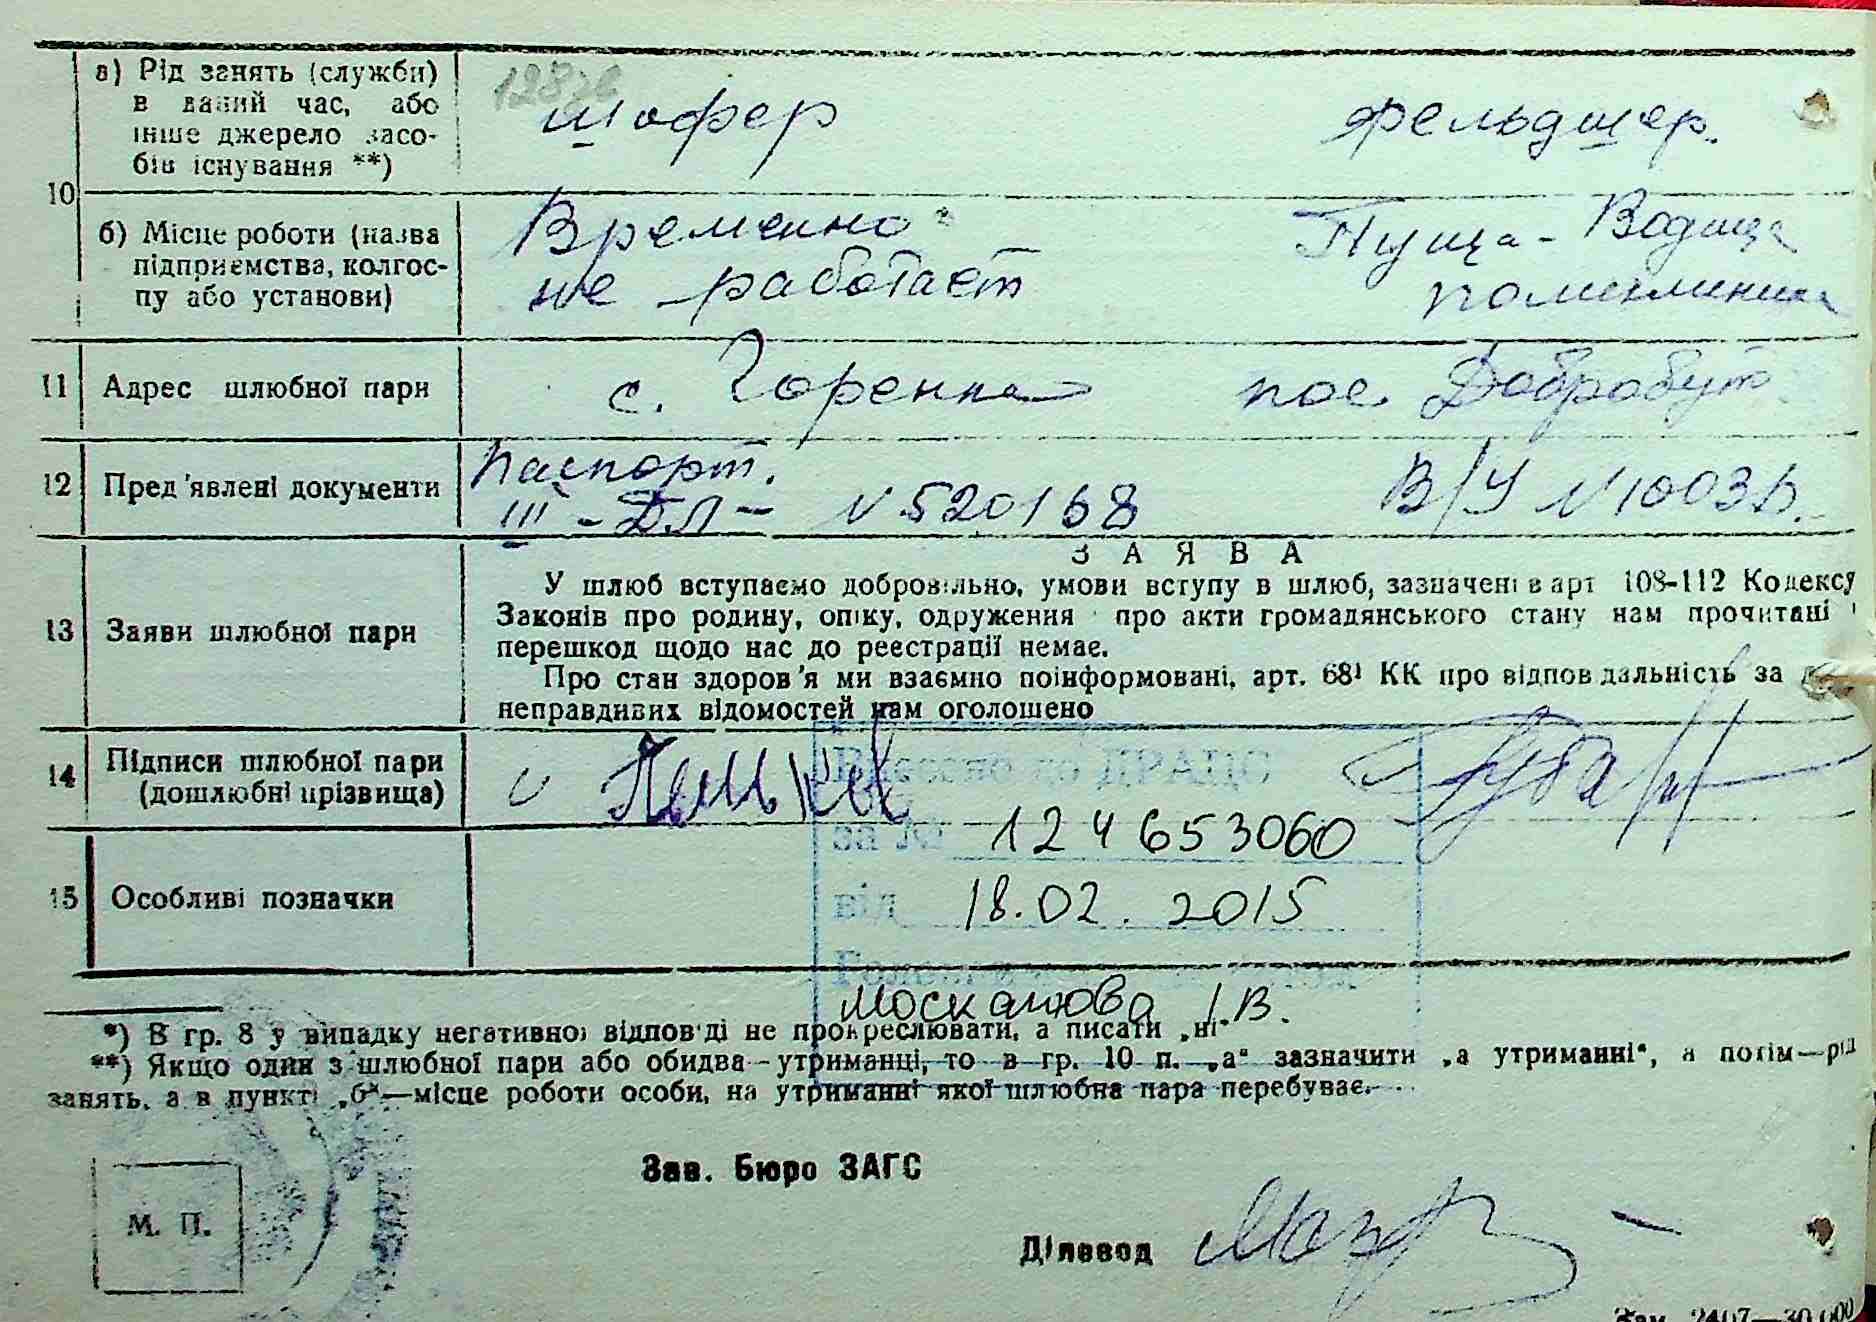 10
а) Рід занять (служби)
в даний час, або
інше джерело засо-
бів існування **)
128
шофер
фельдшер.
б) Місце роботи (назва
підприємства, колгос-
пу або установи)
Временно
не работает
Пуща-Водица
поликлиника
11 Адрес шлюбної пари
с. Горенка пос. Добробут
12 Пред'явлені документи
Паспорт.
III-БЛ- N 520168
В/У N 1003
13 Заяви шлюбної пари
ЗАЯВА
У шлюб вступаємо добровільно, умови вступу в шлюб, зазначені в арт 108-112 Кодексу
Законів про родину, опіку, одруження про акти громадянського стану нам прочитані
перешкод щодо нас до реєстрації немає.
Про стан здоров'я ми взаємно поінформовані, арт. 68¹ КК про відповідальність за
неправдивих відомостей нам оголошено
14 Підписи шлюбної пари
(дошлюбні прізвища)
Внесено до ДРАЦС
за № 124653060
15 Особливі позначки
від 18.02.2015
Москалюова І.В.
*) В гр. 8 у випадку негативної відповіді не прокреслювати, а писати „ні"
**) Якщо один з шлюбної пари або обидва—утриманці, то в гр. 10 п. „а" зазначити „а утриманні", а потім—рід
занять, а в пункті „б"—місце роботи особи, на утриманні якої шлюбна пара перебуває.
Зав. Бюро ЗАГС
М. П.
Діловод
Зам. 2407—30.000